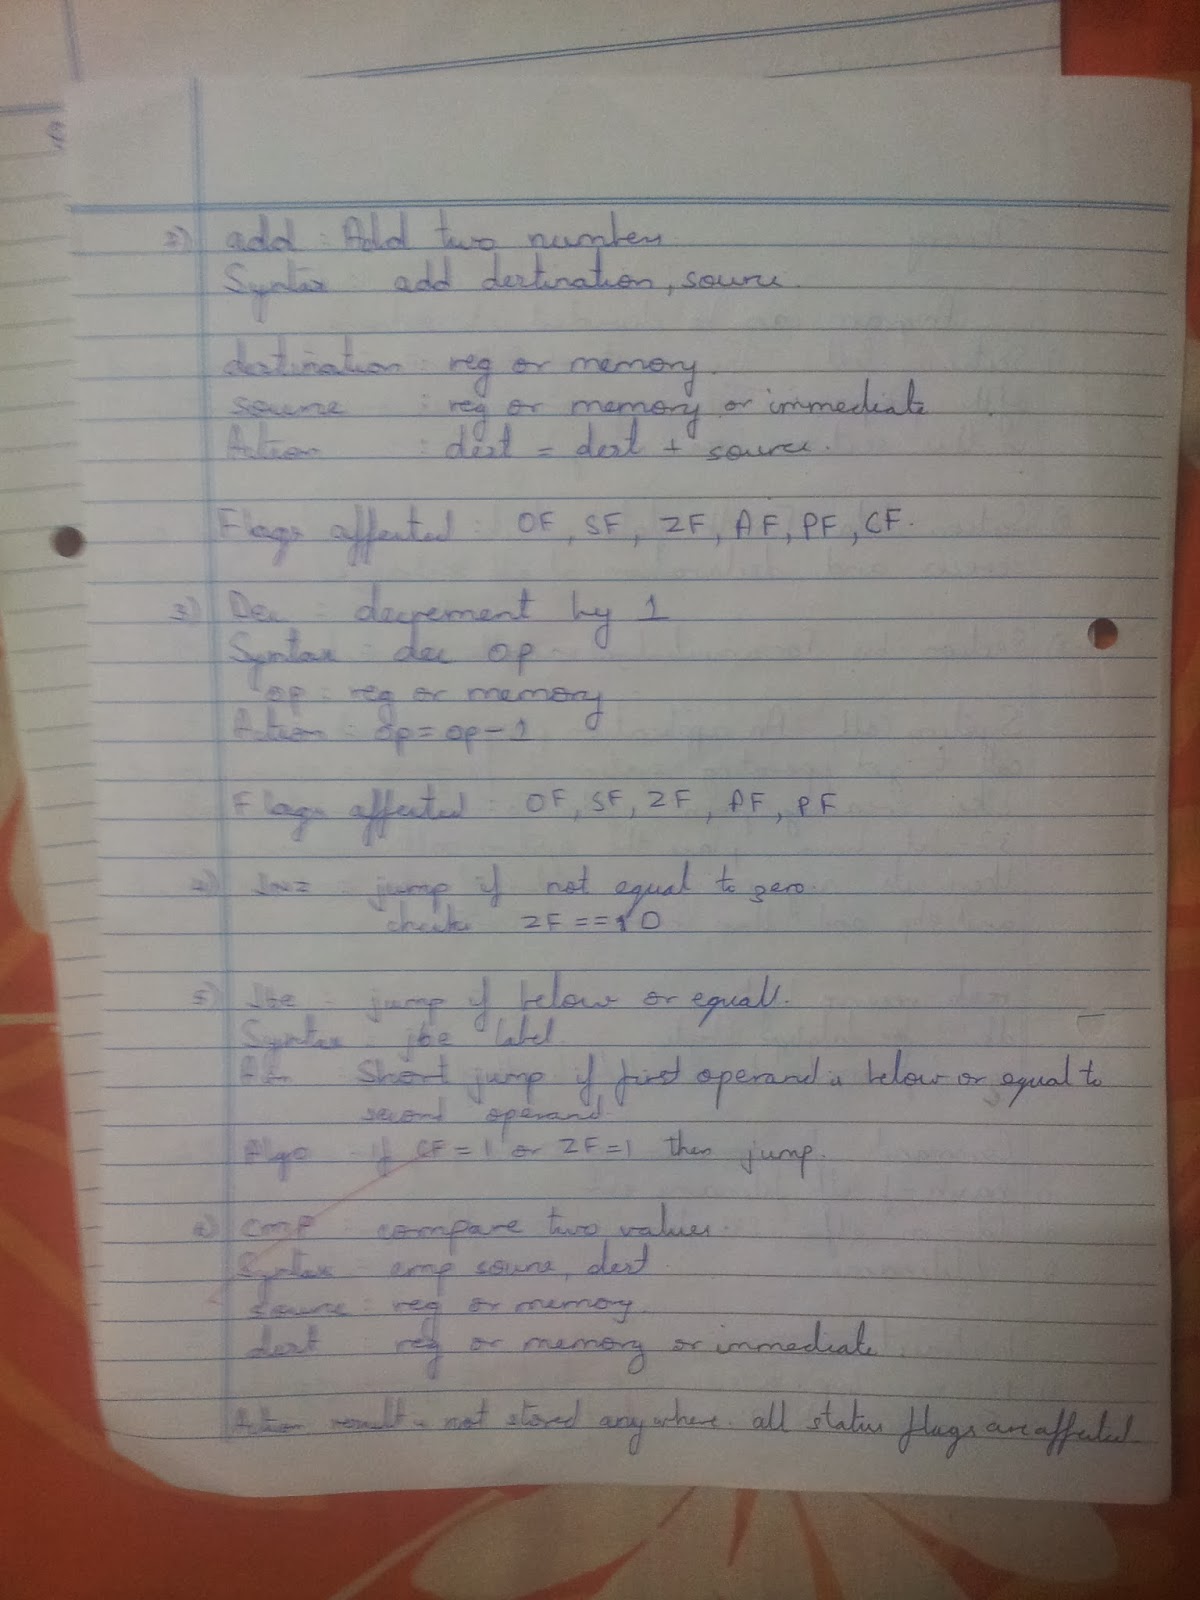 2) add : Add two numbers.
Syntax add destination, source.
destination : reg or memory.
source : reg or memory or immediate
Action : dest = dest + source.
Flags affected : OF, SF, ZF, AF, PF, CF.
3) Dec : decrement by 1
Syntax : dec op
op : reg or memory
Action : op = op - 1
Flags affected : OF, SF, ZF, AF, PF
4) Jnz : jump if not equal to zero
checks ZF == 0
5) Jbe : jump if below or equal.
Syntax : jbe label
Short jump if first operand is below or equal to
second operand
Algo : if CF = 1 or ZF = 1 then jump.
cmp : compare two values.
Syntax : cmp source, dest
source : reg or memory.
dest : reg or memory or immediate
Action result is not stored anywhere. all status flags are affected